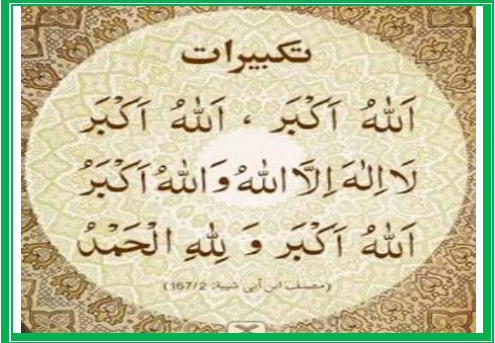 تكبيرات
اَللهُ اَكْبَر ، اَللهُ اَكْبَر
لَا اِلٰهَ اِلَّا اللهُ وَاللهُ اَكْبَرُ
اَللهُ اَكْبَر وَ لِلّٰهِ الْحَمْدُ
(مصنف ابن أبى شيبة: 167/2)